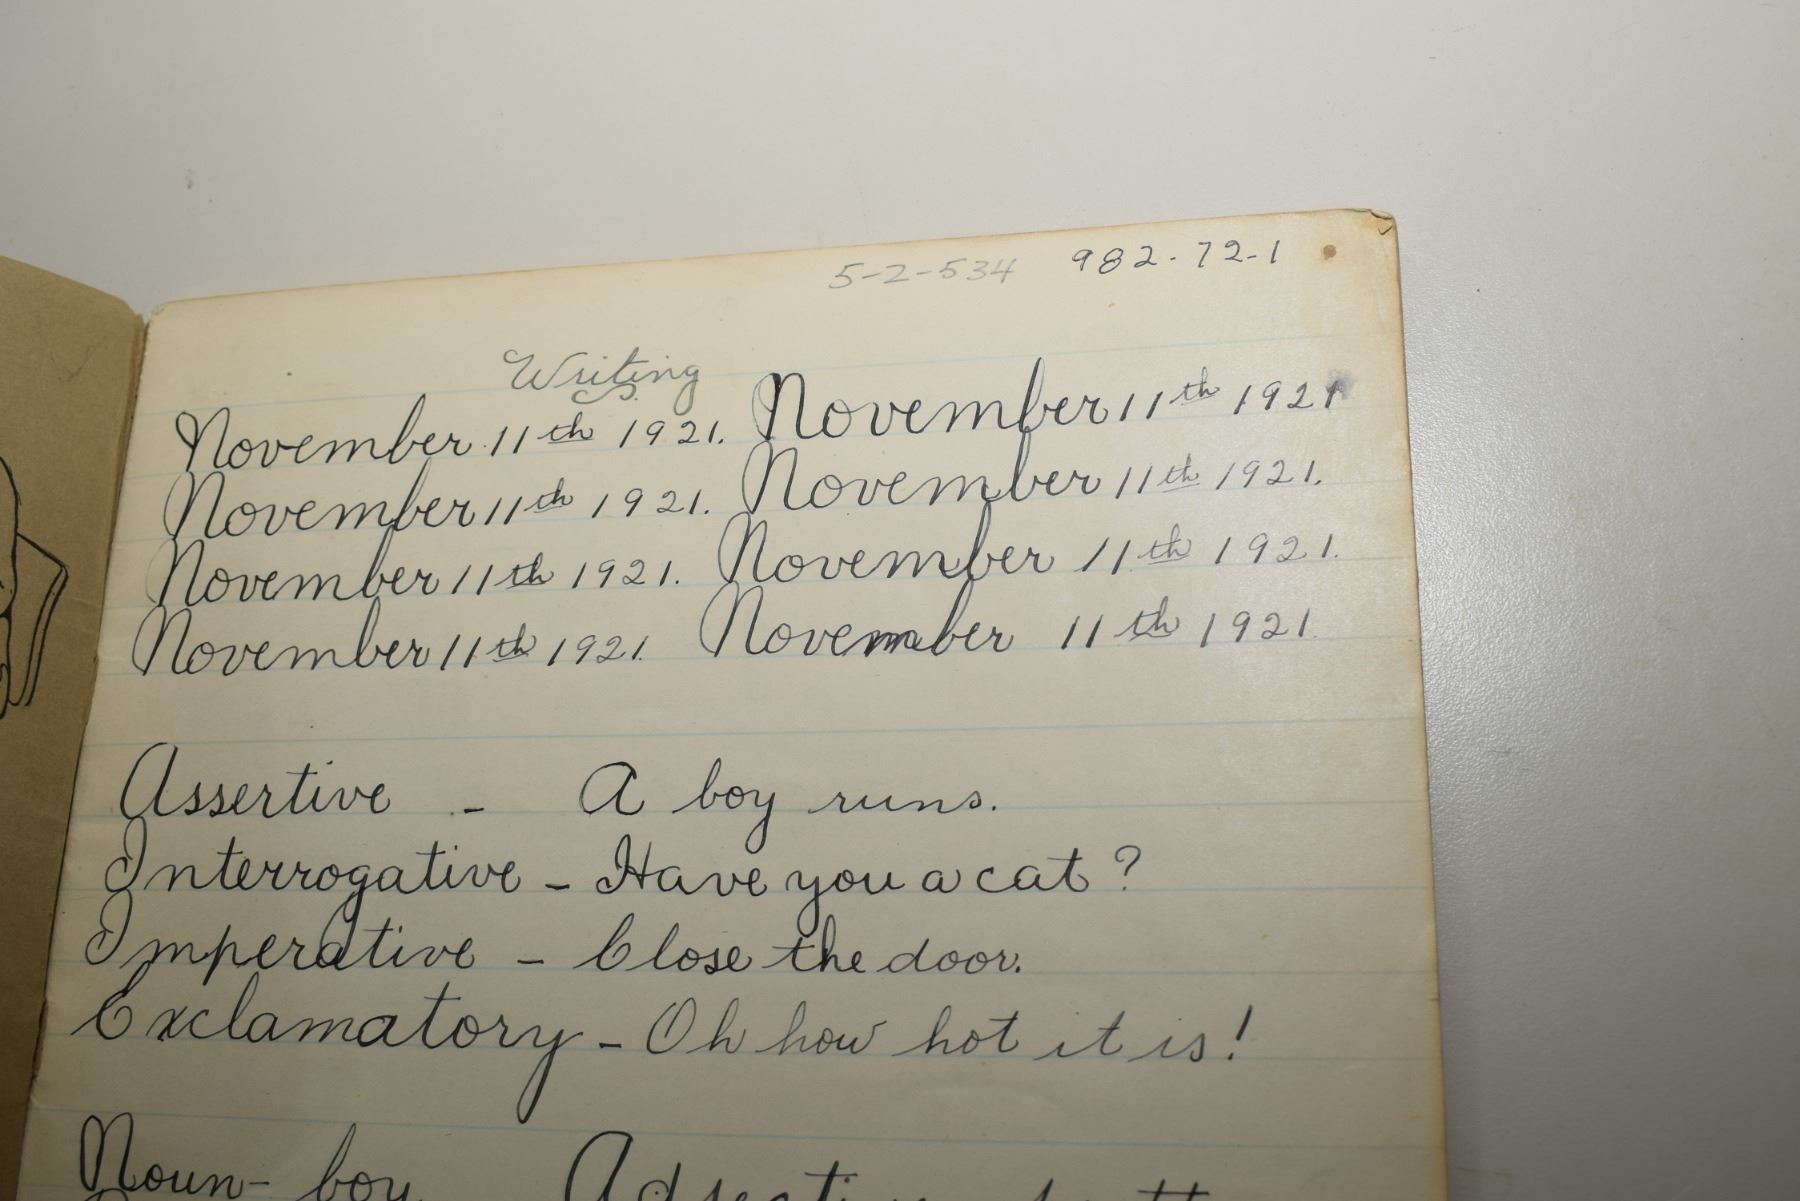 5-2-534 982.72-1
Writing
November 11th 1921. November 11th 1921
November 11th 1921. November 11th 1921.
November 11th 1921. November 11th 1921.
November 11th 1921. November 11th 1921.
Assertive - A boy runs.
Interrogative - Have you a cat?
Imperative - Close the door.
Exclamatory - Oh how hot it is!
Noun - boy